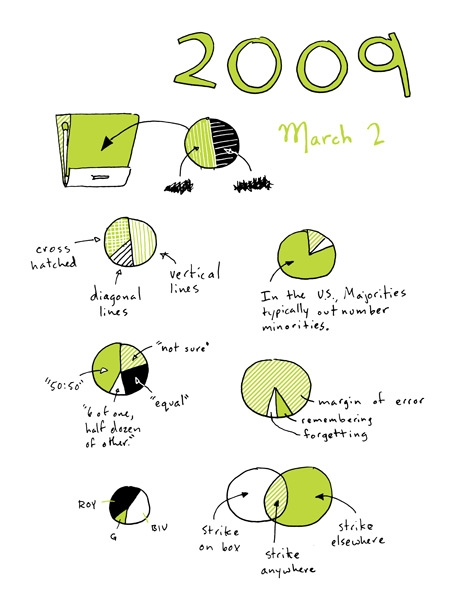 2009
March 2
cross
hatched
diagonal
lines
vertical
lines
In the U.S., Majorities
typically out number
minorities.
"not sure"
"50:50"
"equal"
"6 of one,
half dozen
of other."
margin of error
remembering
forgetting
ROY
G
BIV
strike
on box
strike
anywhere
strike
elsewhere